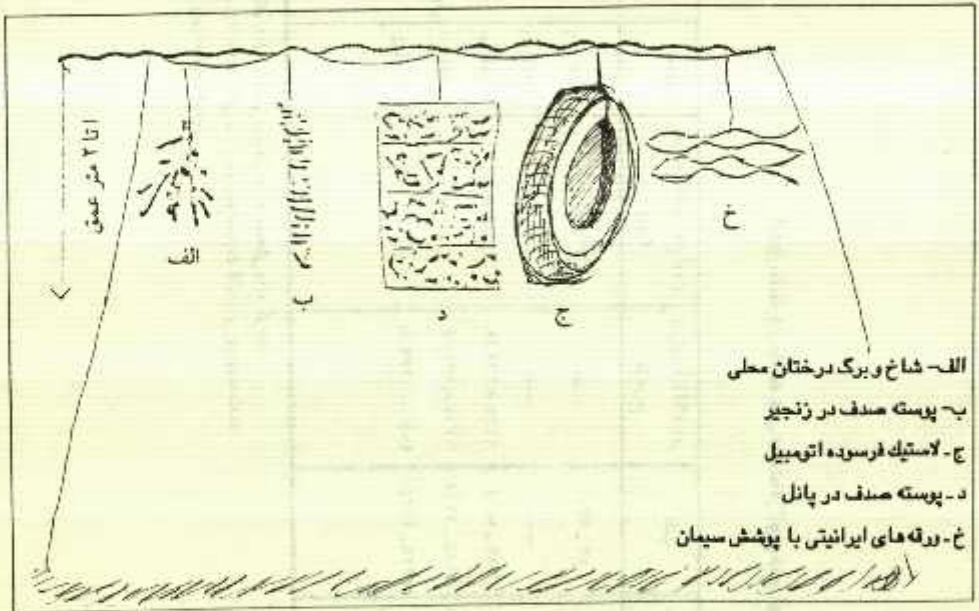 ۱ تا ۲ متر عمق
الف
ب
د
ج
خ
الف- شاخ و برگ درختان محلی
ب- پوسته صدف در زنجیر
ج- لاستیك فرسوده اتومبیل
د- پوسته صدف در پانل
خ- ورقه‌های ایرانیتی با پوشش سیمان